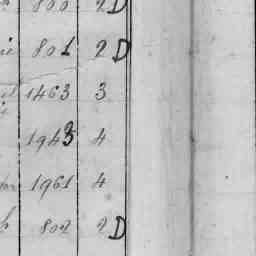 800 2D
801 2D
1463 3
1943 4
1961 4
802 2D